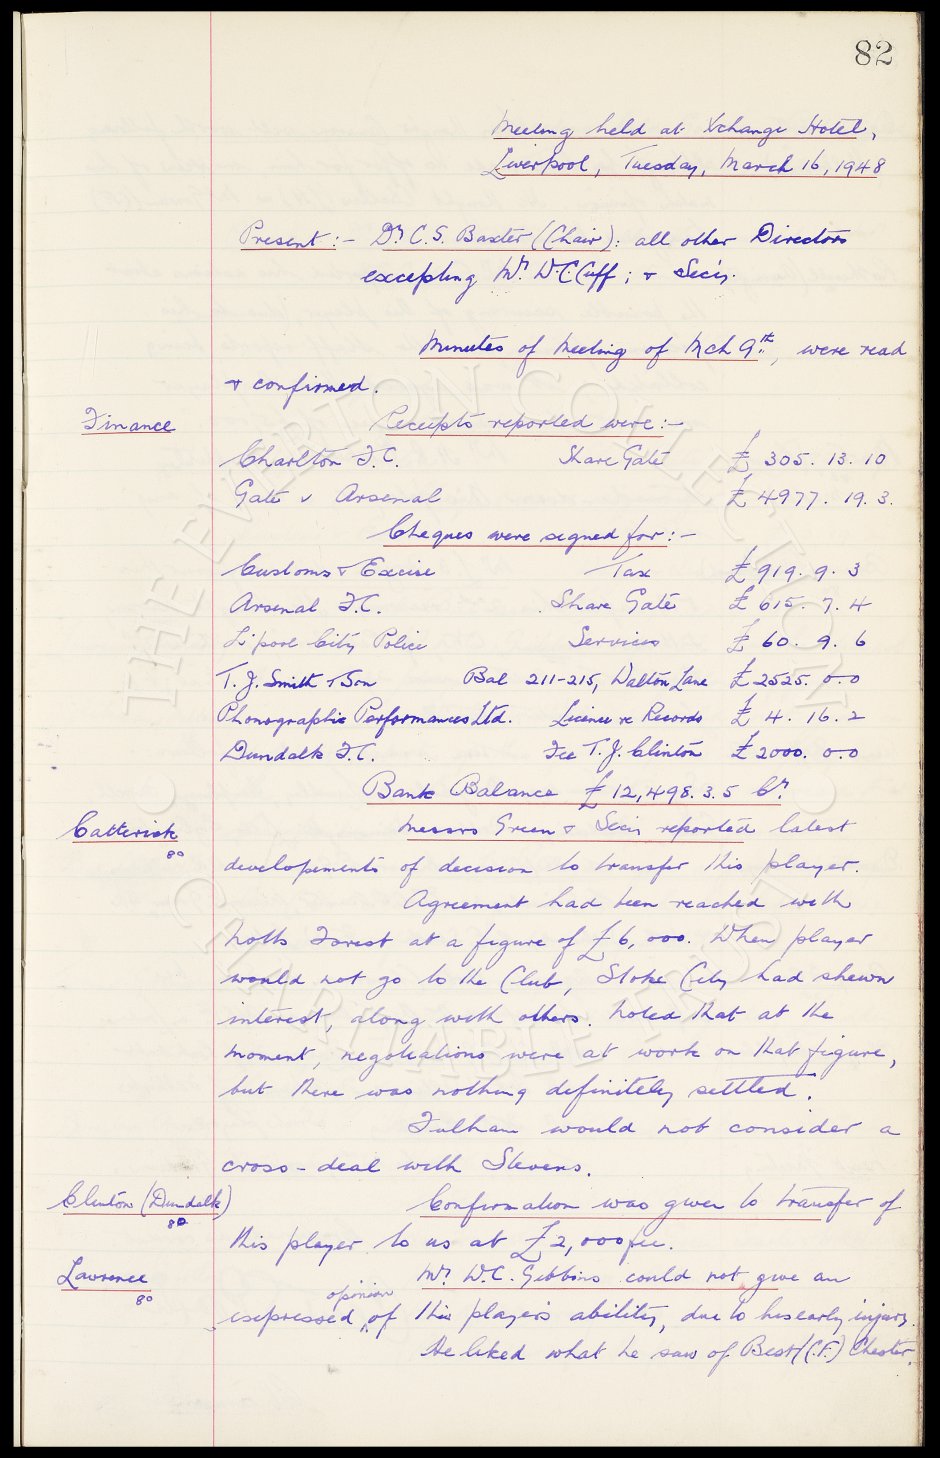 82
Meeting held at Xchange Hotel,
Liverpool, Tuesday, March 16, 1948
Present :- Dr C. S. Baxter (Chair): all other Directors
excepting Mr. W.C. Cuff ; & Secy.
Minutes of Meeting of Mch 9th, were read
& confirmed.
Finance
Receipts reported were :-
Charlton F.C. Share Gate £ 305. 13. 10
Gate v Arsenal £ 4977. 19. 3.
Cheques were signed for :-
Customs & Excise Tax £ 919. 9. 3
Arsenal F.C. Share Gate £ 615. 7. 4
L'pool City Police Services £ 60. 9. 6
T. J. Smith & Son Bal 211-215, Walton Lane £ 2525. 0.0
Phonographic Performances Ltd. Licence re Records £ 4. 16. 2
Dundalk F.C. Fee T. J. Clinton £ 2000. 0.0
Bank Balance £ 12,498. 3. 5 Cr
Catterick
80
Messrs Green & Secy reported latest
developments of decision to transfer this player.
Agreement had been reached with
Notts Forest at a figure of £6,000. When player
would not go to the Club, Stoke City had shewn
interest, along with others. Noted that at the
moment, negotiations were at work on that figure,
but there was nothing definitely settled.
Fulham would not consider a
cross-deal with Stevens.
Clinton (Dundalk)
80
Confirmation was given to transfer of
this player to us at £2,000 fee.
Lawrence
80
Mr. W.C. Gibbins could not give an
expressed opinion of this player's ability, due to his early injury.
He liked what he saw of Best (C.F.) Chester.
THE EVERTON COLLECTION
CHARITABLE TRUST